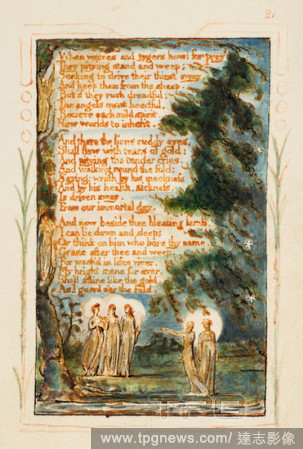 21
When wolves and tygers howl for prey
They pitying stand and weep;
Seeking to drive their thirst away,
And keep them from the sheep.
But if they rush dreadful;
The angels most heedful,
Recieve each mild spirit,
New worlds to inherit.
And there the lions ruddy eyes,
Shall flow with tears of gold:
And pitying the tender cries,
And walking round the fold:
Saying: wrath by his meekness
And by his health, sickness,
Is driven away,
From our immortal day.
And now beside thee bleating lamb,
I can lie down and sleep;
Or think on him who bore thy name,
Grase after thee and weep.
For wash'd in lifes river,
My bright mane for ever,
Shall shine like the gold,
As I guard o'er the fold.
TPG
www.tpgnews.com/達志影像